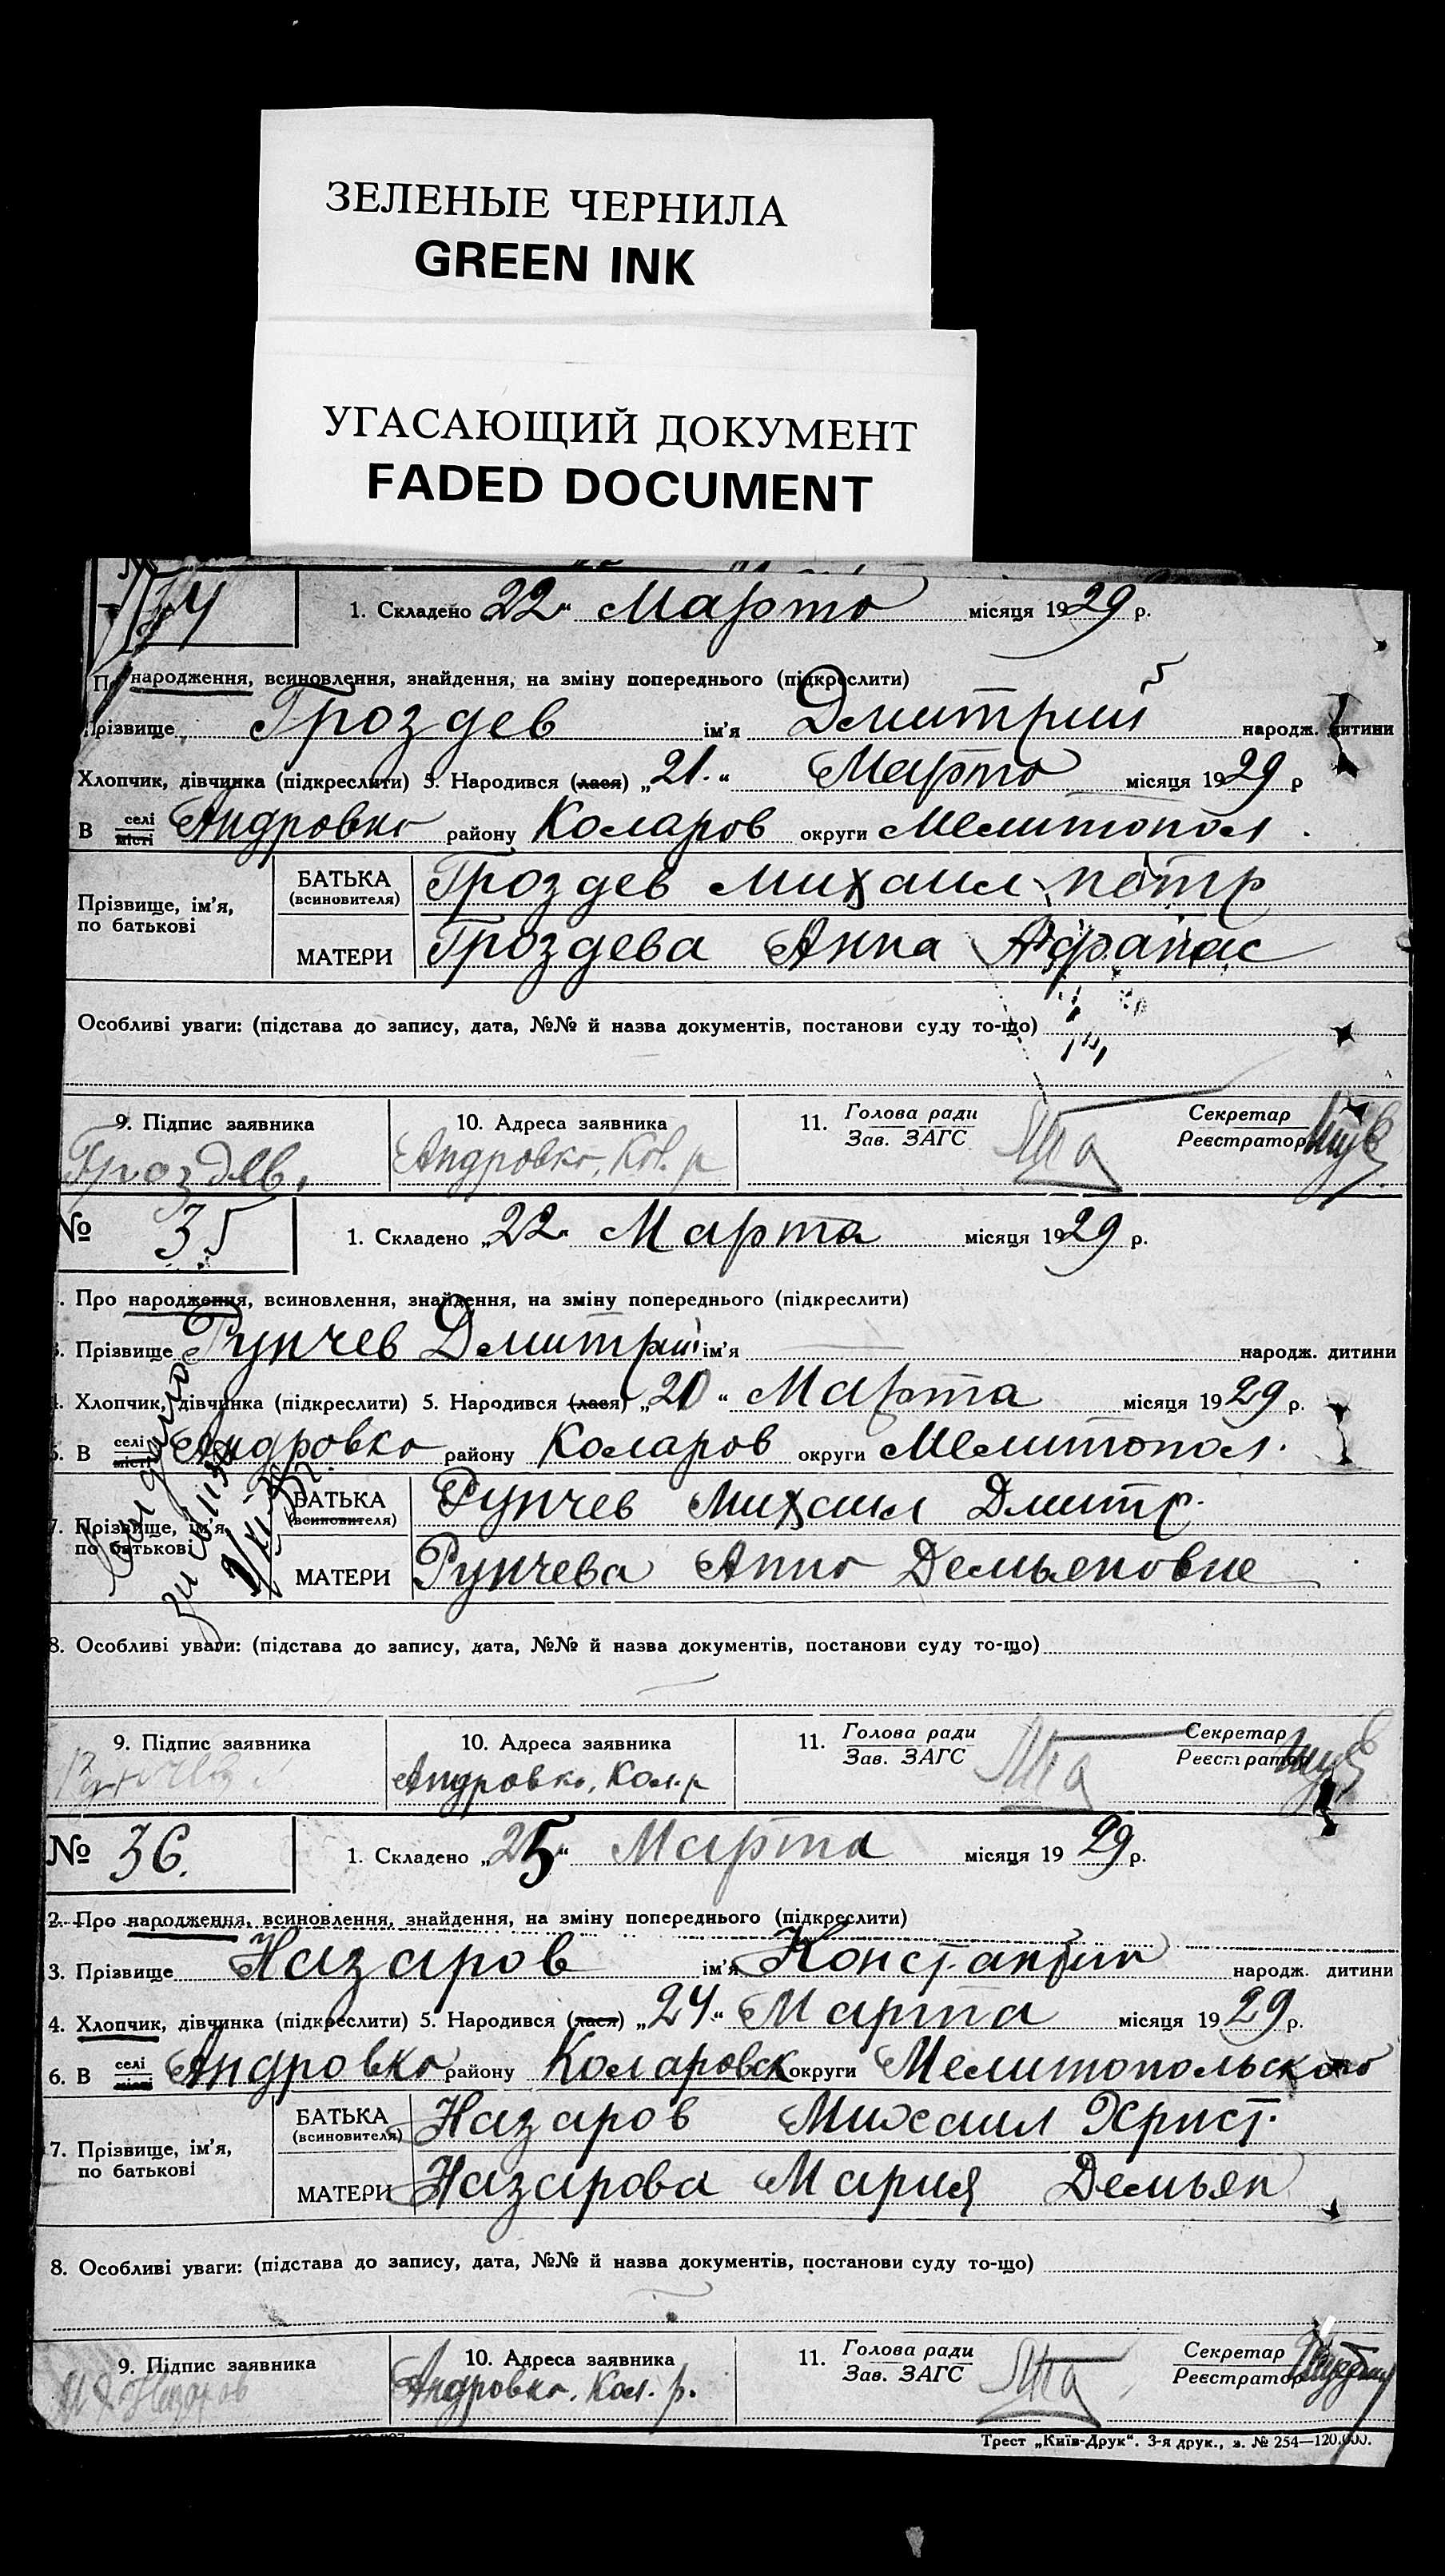 ЗЕЛЕНЫЕ ЧЕРНИЛА
GREEN INK
УГАСАЮЩИЙ ДОКУМЕНТ
FADED DOCUMENT
1. Складено 22 " Марта місяця 1929 р.
народження, всиновлення, знайдення, на зміну попереднього (підкреслити)
Прізвище Гроздев ім'я Дмитрий народж. дитини
Хлопчик, дівчинка (підкреслити) 5. Народився (лася) „21." Марта місяця 1929 р
В селі місті Андровка району Коларов округи Мелитопол.
БАТЬКА Гроздев Михаил петр
(всиновителя)
Прізвище, ім'я,
по батькові
МАТЕРИ Гроздева Анна Афанас
Особливі уваги: (підстава до запису, дата, №№ й назва документів, постанови суду то-що)
9. Підпис заявника 10. Адреса заявника 11. Голова ради Секретар
Зав. ЗАГС Реєстратор
Гроздев. Андровка, Кол. р
№ 35 1. Складено „22" Марта місяця 1929 р.
. Про народження, всиновлення, знайдення, на зміну попереднього (підкреслити)
3. Прізвище Рупчев Дмитрий ім'я народж. дитини
4. Хлопчик, дівчинка (підкреслити) 5. Народився (лася) „20" Марта місяця 1929 р.
6. В селі місті Андровка району Коларов округи Мелитопол.
БАТЬКА Рупчев Михаил Дмитр.
(всиновителя)
7. Прізвище, ім'я,
по батькові
МАТЕРИ Рупчева Анна Демьяновне
8. Особливі уваги: (підстава до запису, дата, №№ й назва документів, постанови суду то-що)
9. Підпис заявника 10. Адреса заявника 11. Голова ради Секретар
Зав. ЗАГС Реєстратор
Андровка, Кол. р
№ 36. 1. Складено „25" Марта місяця 1929 р.
2. Про народження, всиновлення, знайдення, на зміну попереднього (підкреслити)
3. Прізвище Назаров ім'я Константин народж. дитини
4. Хлопчик, дівчинка (підкреслити) 5. Народився (лася) „24" Марта місяця 1929 р.
6. В селі місті Андровка району Коларовск округи Мелитопольского
БАТЬКА Назаров Михаил Христ.
(всиновителя)
7. Прізвище, ім'я,
по батькові
МАТЕРИ Назарова Мария Демьян
8. Особливі уваги: (підстава до запису, дата, №№ й назва документів, постанови суду то-що)
9. Підпис заявника 10. Адреса заявника 11. Голова ради Секретар
Зав. ЗАГС Реєстратор
Назаров Андровка. Кол. р.
Трест „Київ-Друк". 3-я друк., з. № 254—120.000.